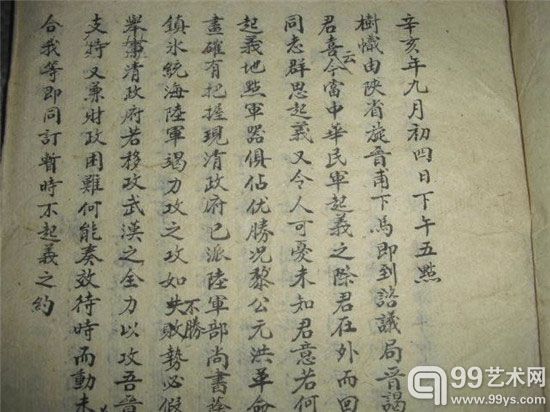 辛亥年九月初四日下午五點
樹幟由陝省旋晋甫下馬即到諮議局晋謁
君喜云今當中華民軍起義之際君在外而回
同志群思起義又令人可憂未知君意若何
起義地點軍器俱佔优勝况黎公元洪革命
畫確有把握現清政府已派陸軍部尚書蔭
鎮氷統海陸軍竭力攻之攻如失敗不勝勢必假
清政府若移攻武漢之全力以攻吾晋
支持又兼財政困難何能奏效待時而動未
合我等即同訂暫時不起義之約
99艺术网
www.99ys.com